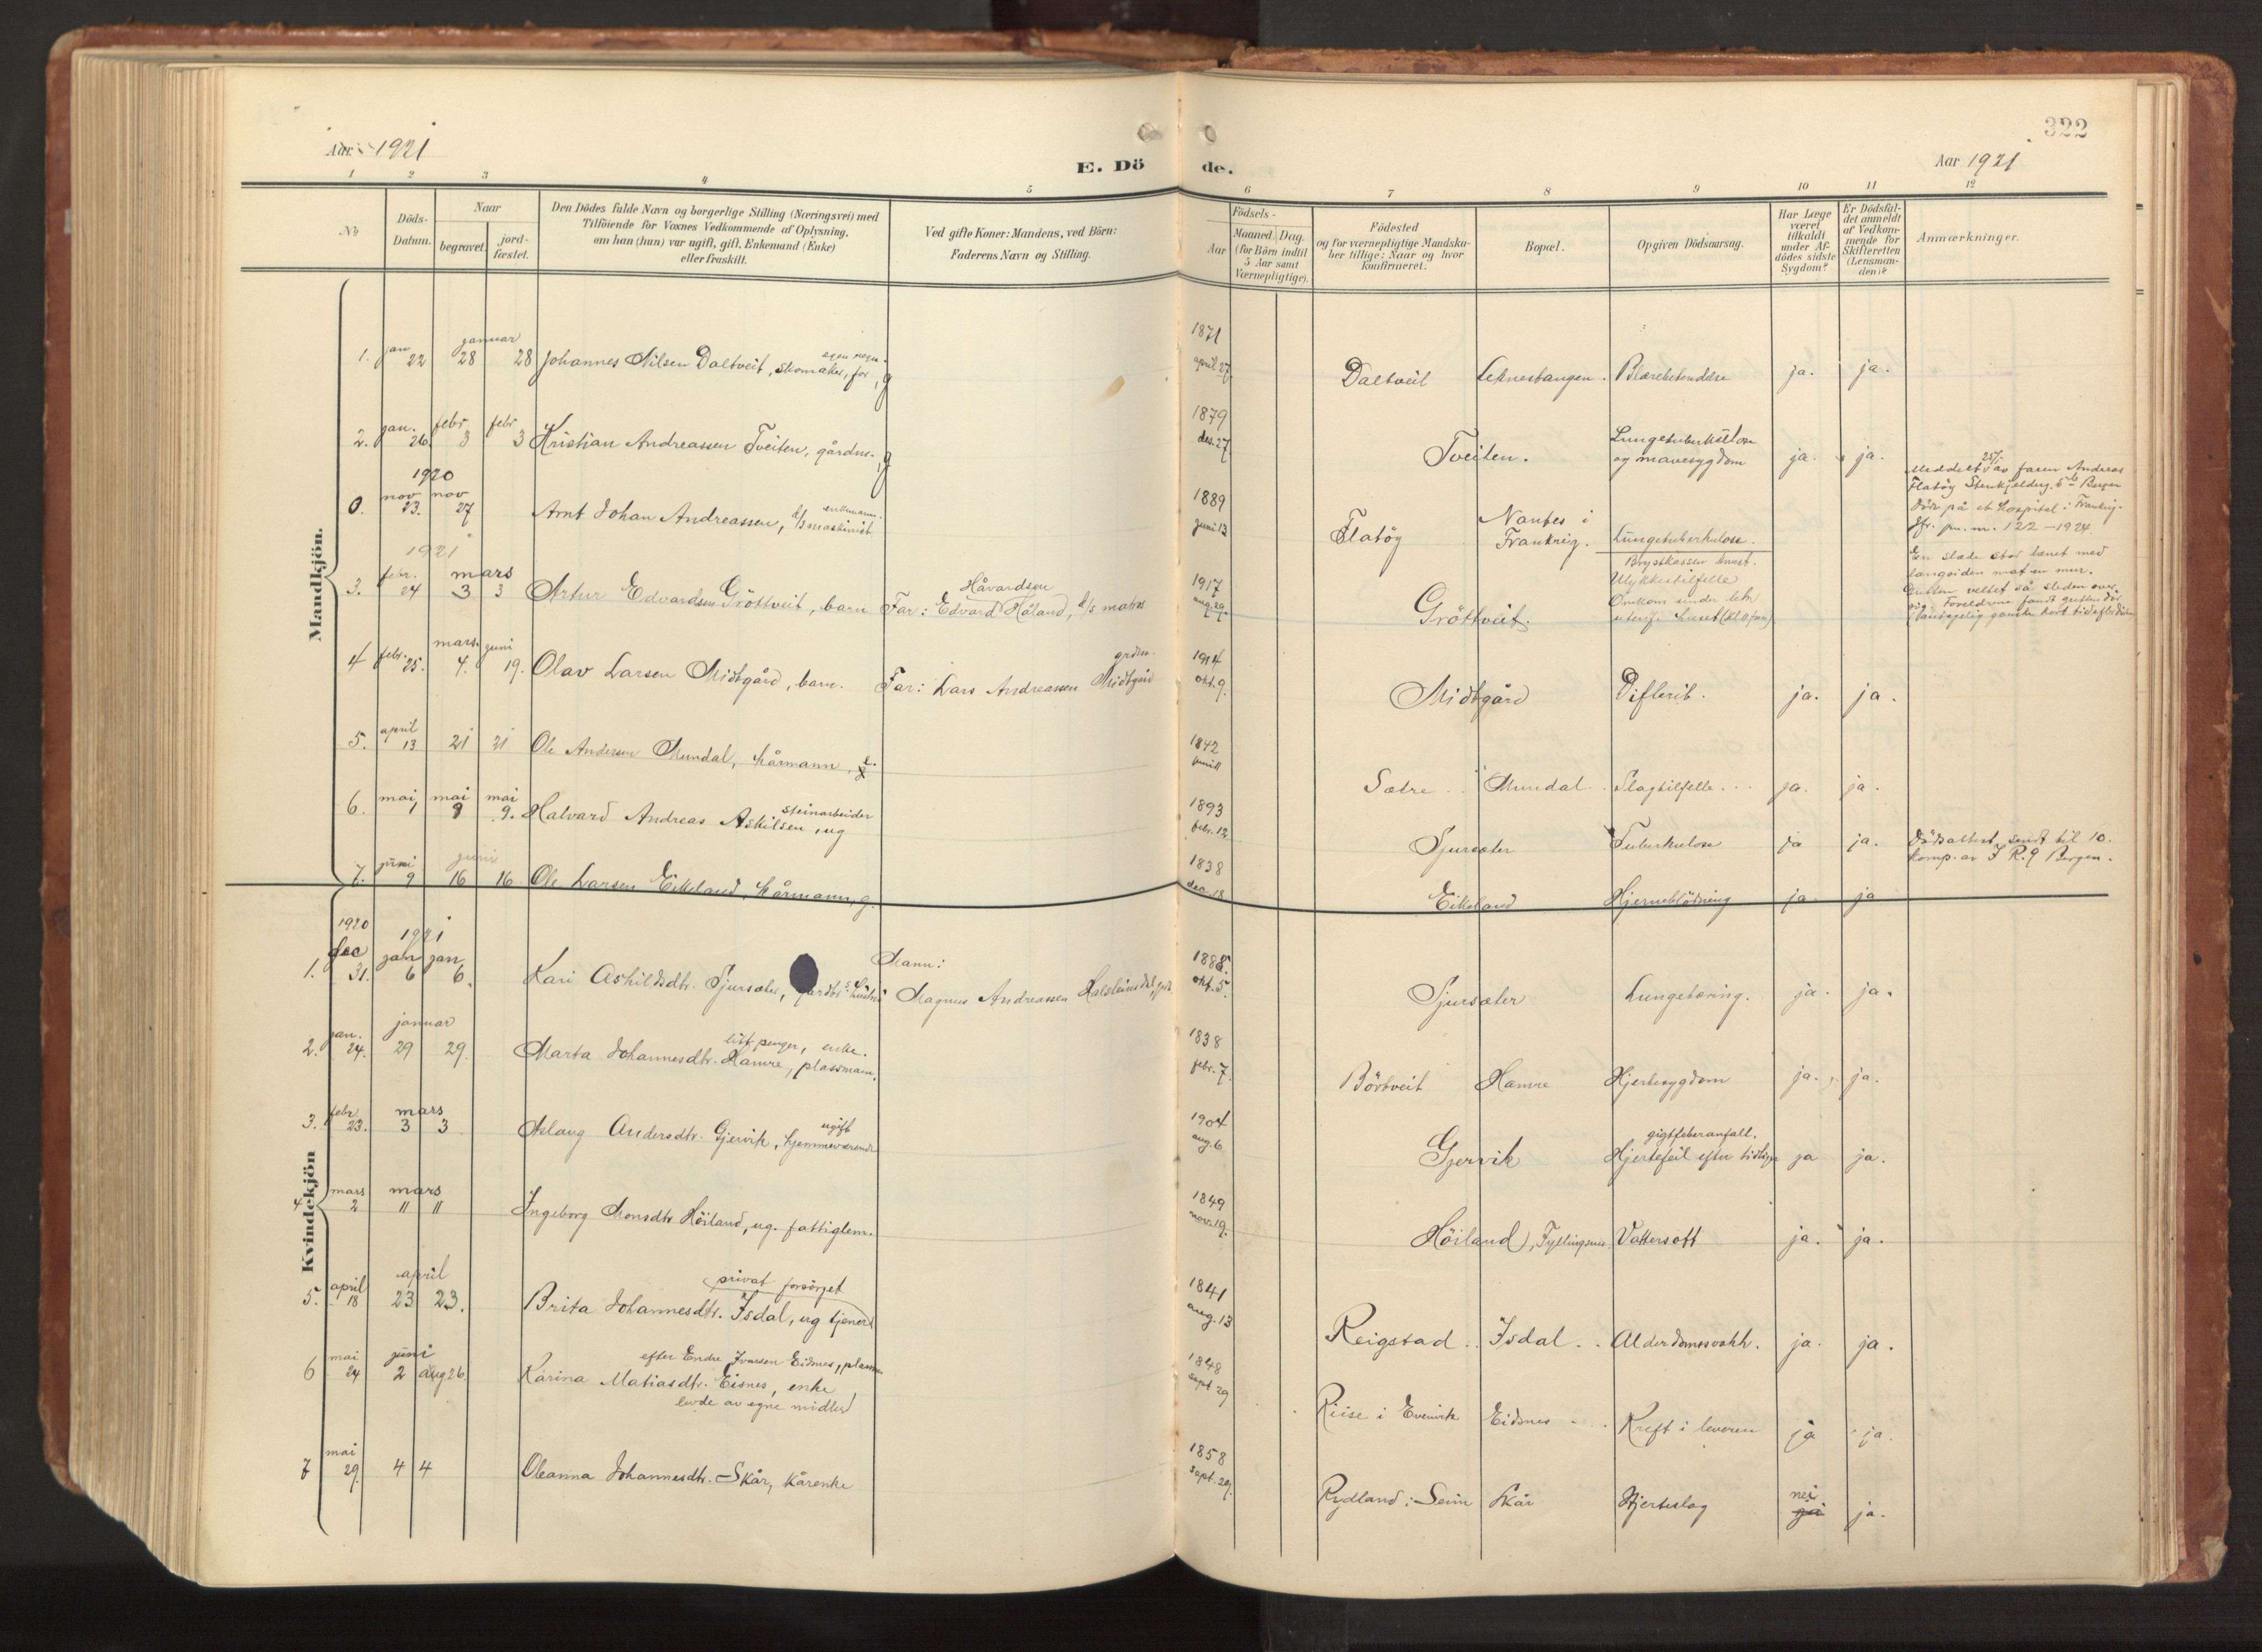 322
Aar 1921
E. Döde.
Aar 1921
1 2 3 4 5 6 7 8 9 10 11 12
No
Döds-Datum.
Naar
begravet.
jord-fæstet.
Den Dödes fulde Navn og borgerlige Stilling (Næringsvei) med
Tilföiende for Voxnes Vedkommende af Oplysning,
om han (hun) var ugift, gift, Enkemand (Enke)
eller fraskilt.
Ved gifte Koner: Mandens, ved Börn:
Faderens Navn og Stilling.
Födsels-
Aar
Maaned. Dag.
(for Börn indtil
5 Aar samt
Værnepligtige).
Födested
og for værnepligtige Mandska-
ber tillige: Naar og hvor
konfirmeret.
Bopæl.
Opgiven Dödsaarsag.
Har Læge
været
tilkaldt
under Af-
dödes sidste
Sygdom?
Er Dödsfal-
det anmeldt
af Vedkom-
mende for
Skifteretten
(Lensman-
den)?
Anmærkninger.
Mandkjön.
1. jan 22 januar 28 28 Johannes Nilsen Daltveit, skomaker, for egen regn., g 1871 april 27 Daltveit Leknestangen. Blærebetendelse ja. ja.
2. jan. 26. febr. 3 febr 3 Kristian Andreassen Tveiten, gårdm., g 1879 des. 27 Tveiten. Lungetuberkulose og mavesygdom ja. ja.
1920
0. nov 23. nov 27 Arnt Johan Andreassen, d/s maskinist enkemann. 1889 juni 13 Flatöy Nantes i Frankrig. Lungetuberkulose.
Meddelt 25/1 av faren Andreas
Flatöy Stenkjelderg. 5 b Bergen
Död på et Hospital i Frankrig.
Jfr. pn. nr. 122 - 1924.
1921
3. febr. 24 mars 3 3 Artur Edvardsen Gröttveit, barn Far: Edvard Håvardsen Håland, d/s matros 1917 aug. 29. Gröttveit. Brystkassen knust.
Ulykkestilfelle
Omkom under lek
utenf. huset (kl. 11 fm)
En slæde stor lænet med
langsiden mot en mur.
Gutten veltet så sleden over
sig. Foreldrene fandt gutten död
4 febr. 25. mars. 4. juni 19. Olav Larsen Midtgård, barn. Far: Lars Andreassen Midtgård grdm. 1914 okt. 9. Midtgård Difterit. ja. ja.
5. april 13 21 21 Ole Andersen Mundal, kårmann, e. 1842 Sætre Mundal Slagtilfelle ja. ja.
6. mai 1 mai 9 mai 9. Halvard Andreas Askilsen, steinarbeider ug 1893 febr. 12 Sjursæter Tuberkulose ja ja. Dödsattest sendt til 10.
komp. av I. R. 9 Bergen.
7. juni 9 juni 16 16 Ole Larsen Eikeland, kårmann, g. 1838 dec. 18 Eikeland Hjerneblödning ja ja
Kvindekjön
1. 1920 dec 31. 1921 jan 6 jan 6. Kari Askildsdtr. Sjursæter, gardbr.s hustru Mann: Magnus Andreassen Halsteinsdal, 1888. okt. 5. Sjursæter Lungetæring. ja. ja.
2. jan. 24. januar 29 29. Marta Johannesdtr. Hamre, plassmann, enke. 1838 febr. 7. Börtveit Hamre Hjertesygdom ja. ja.
3. febr 23. mars 3 3 Aslaug Andersdtr. Gjervik, hjemmeværende ugift 1904 aug. 6 Gjervik Hjertefeil efter tidligere gigtfeberanfall. ja ja.
4 mars 2 mars 11 11 Ingeborg Monsdtr Höiland, ug. fattiglem. 1849 nov. 19. Höiland, Fyllingsnes Vattersott ja. ja.
5. april 18 april 23 23. Brita Johannesdtr. Isdal, ug tjener (privat forsörget 1841 aug. 13 Reigstad Isdal Alderdomssvakh. ja. ja.
6 mai 24 juni 2 aug 26. Karina Matiasdtr. Eisnes, enke efter Endre Ivarsen Eidnes, plassm levde av egne midler 1848 sept 29 Riise i Evenvik Eidsnes Kreft i leveren ja ja.
7 mai 29. 4 4 Oleanna Johannesdtr. Skår, kårenke 1858 sept. 29. Rydland i Seim Skår Hjerteslag nei ja ja.